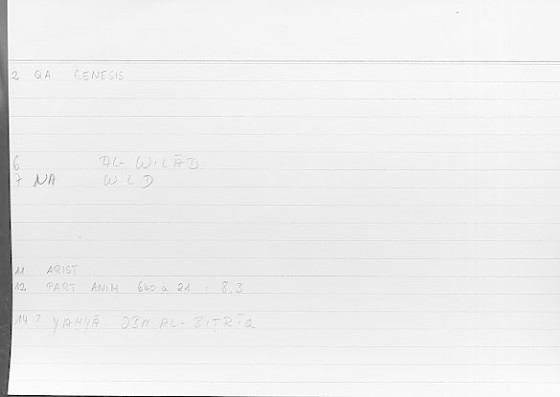 2 QA GENESIS
6 AL-WILĀD
7 NA WLD
11 ARIST
12 PART ANIM 640 a 21 : 8.3
14 ? YAḤYĀ IBN AL-BIṬRĪQ